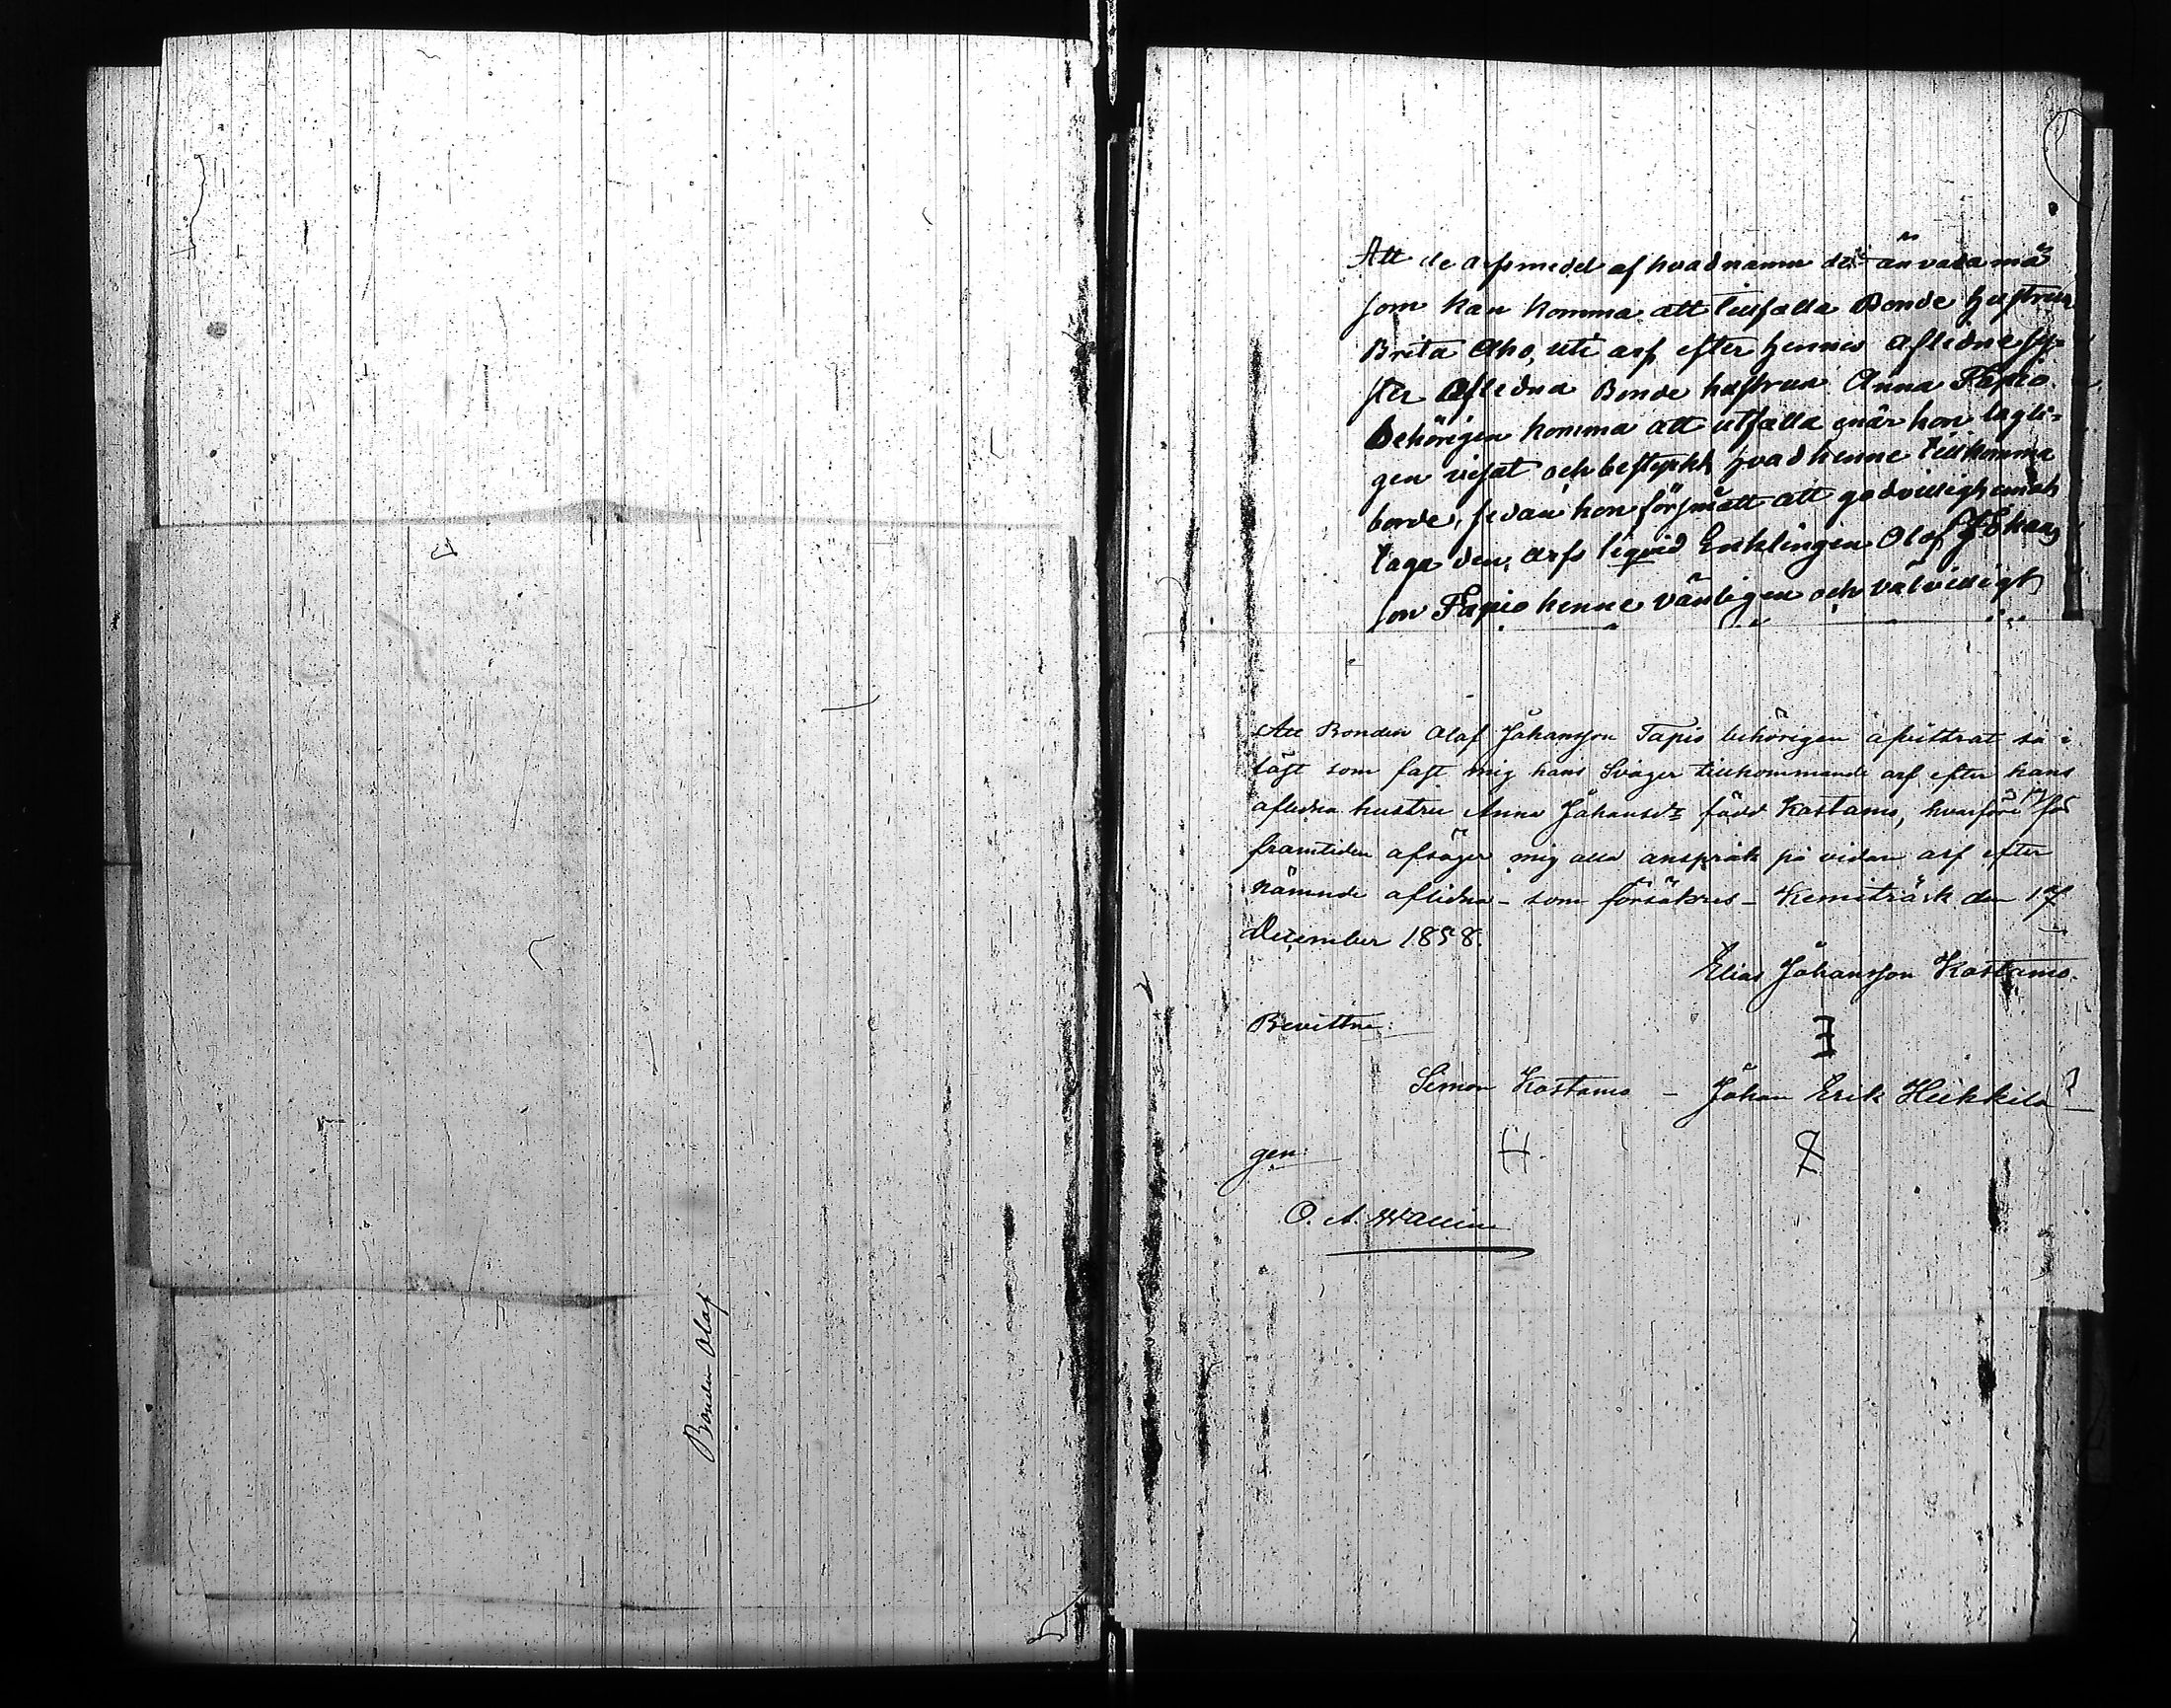 Bonden Olof
Att de arfsmedel af hvad namn de än vara må
som kan komma att tillfalla Bonde hustrun
Brita Aho, uti arf efter hennes aflidne sy-
ster aflidna Bonde hustrun Anna Tapio
behörigen komma att utfalla när hon lagli-
gen visat och bestyrkt hvad henne tillkomma
borde, sedan hon försmått att godvilligt emot
taga den arfs liqvid Enklingen Olof Johans
son Tapio henne vänligen och välvilligt
Att Bonden Olof Johansson Tapio behörigen afvittrat så-
löst som fast mig hans Svåger tillkommande arf efter hans
aflidna hustru Anna Johansdr född Kostamo, hvarföre för
framtiden afsäger mig alla anspråk på vidare arf efter
nämnde aflidna - som försäkres - Kemiträsk den 17
December 1858.
Elias Johansson Kostamo.
Bevittna:
Simon Kostamo - Johan Erik Heikkilä
gen:
O. A. Wallin